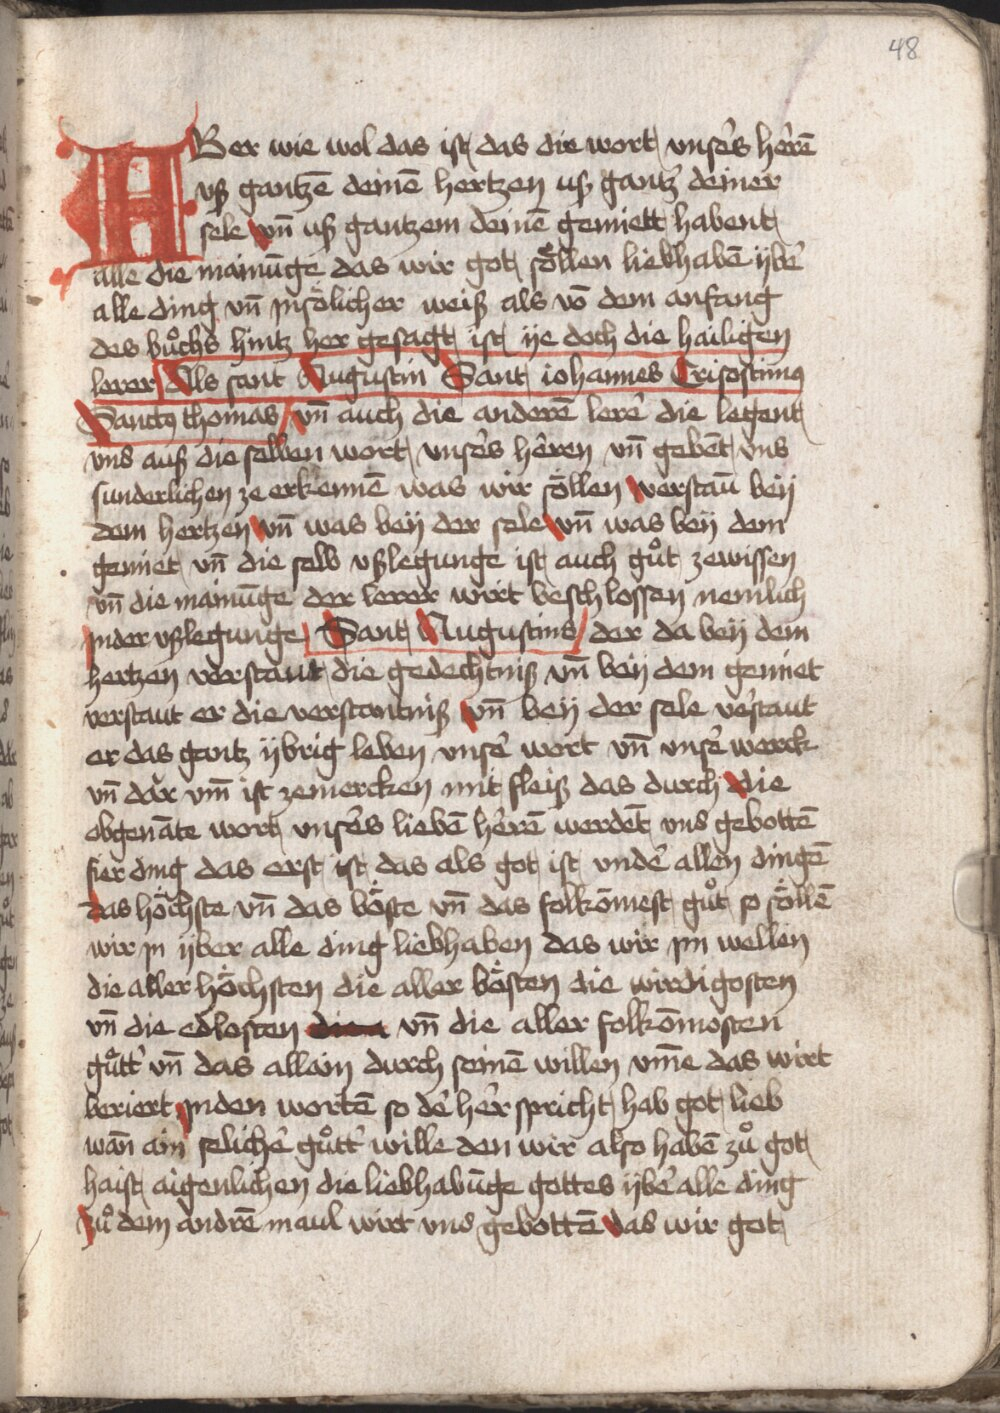 48
ABer wie wol das ist das die wort unsers herē
uß gantzē deinē hertzen uß gantz deiner
sele vn̄ uß gantzem deinē gemiett habent
alle die mainūge das wir got söllen liebhabē ÿber
alle ding vn̄ jn sölicher weiß als vō dem anfang
des bůchs hintz her gesagt ist ÿe doch die hailigen
lerer Als sant Augustin Sant iohannes Crisostimus
Sanctus thomas vn̄ auch die anderē lerer die legent
vns auß die selben wort unsers herren vn̄ gebēt vns
sunderlichen ze erkennē was wir söllen verstaū beÿ
dem hertzen vn̄ was beÿ der sele vn̄ was beÿ dem
gemiet vn̄ die selb ußlegunge ist auch gůt zewissen
vn̄ die mainūge der lerer wirt beschlossen nemlich
jn der ußlegunge Sant Augustins der da beÿ dem
hertzen verstaut die gedechtniß vn̄ beÿ dem gemiet
verstaut er die verstantniß vn̄ beÿ der sele verstaut
er das gantz ÿbrig leben unser wort vn̄ unser werck
vn̄ dar vm̄ ist zemercken mit fleiß das durch die
obgenāte wort unsers liebē herrē werdēt vns gebottē
fier ding das erst ist das als got ist under allen dingē
das höchste vn̄ das böste vn̄ das folkōmest gůt so söllē
wir jn ÿber alle ding liebhaben das wir jm wellen
die aller höchsten die aller bösten die wirdigosten
vn̄ die edlosten vn̄ die aller folkōmosten
gůtt vn̄ das allain durch seinē willen vm̄e das wirt
beriert jn den wortē so der her spricht hab got lieb
wan̄ ain selicher gůtter wille den wir also habē zů got
haist aigenlichen die liebhabūge gottes ÿber alle ding
Zů dem andrē maul wirt vns gebottē das wir got